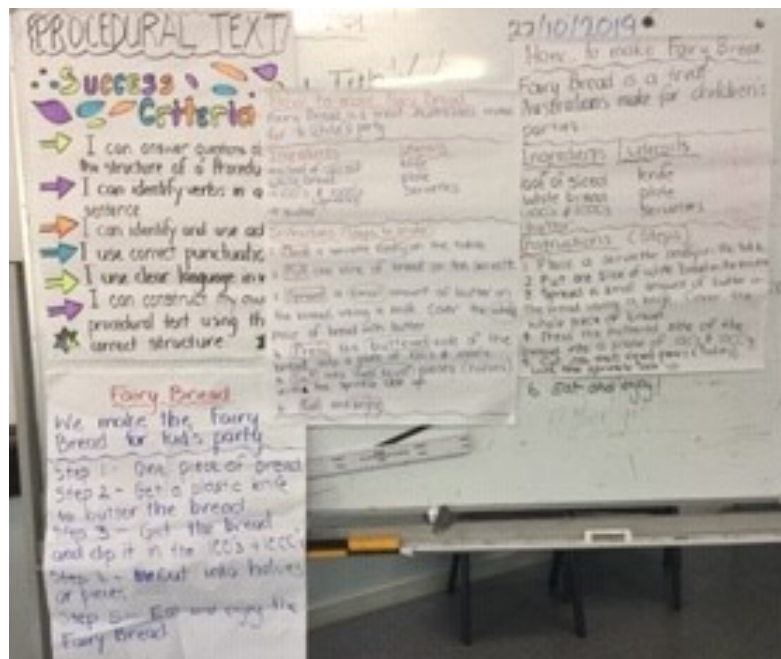 PROCEDURAL TEXT
Success
Criteria
I can answer questions
the structure of a
I can identify verbs in a
sentence
I can identify and use
I use correct
I use clear language in
I can construct my own
procedural text using
correct structure
Fairy Bread
We make the Fairy
Bread for kids party
Step 1 - One piece of bread
Step 2 - Get a plastic knife
to butter the bread
Step 3 - Get the bread
and dip it in the 100s + 1000s
Step 4 - cut into halves
or pieces
Step 5 - Eat and enjoy the
Fairy Bread
Title
How to make Fairy Bread
Fairy Bread is a treat Australians make
for children's party
Ingredients
knife
white bread
plate
Serviettes
Instructions (Steps to make)
1. Place a serviette on the table
2. Put one slice of bread on the serviette
3. Spread a small amount of butter on
the bread using a knife. Cover the whole
piece of bread with butter
4. Press the buttered side of the
bread into a plate of 100s & 1000s
with the sprinkle side up
Eat and enjoy
27/10/2019
How to make Fairy Bread
Fairy Bread is a treat
Australians make for children's
parties
Ingredients Utensils
loaf of sliced knife
white bread plate
100s & 1000s Serviettes
butter
Instructions (Steps)
1. Place a serviette on the table
2. Put one slice of white bread on the
3. Spread a small amount of butter on
the bread using a knife. Cover the
whole piece of bread
4. Press the buttered side of the
bread into a plate of 100s & 1000s
with the sprinkle side up
6. Eat and enjoy!